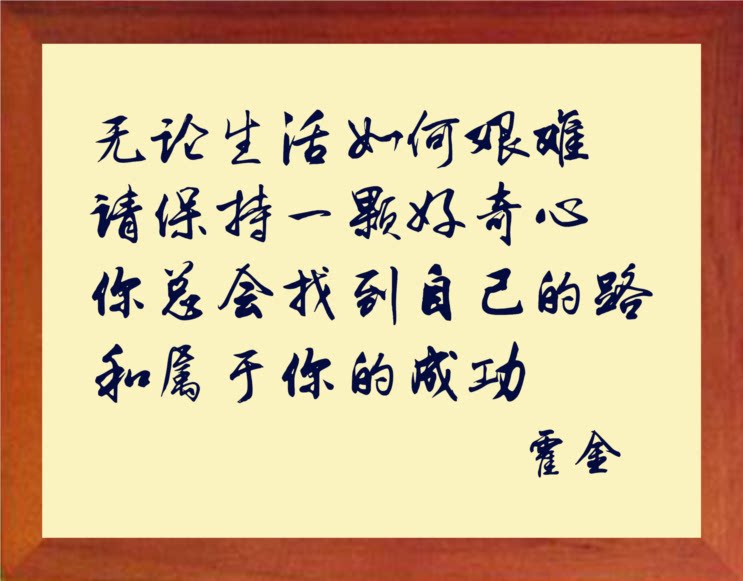 无论生活如何艰难
请保持一颗好奇心
你总会找到自己的路
和属于你的成功
霍金